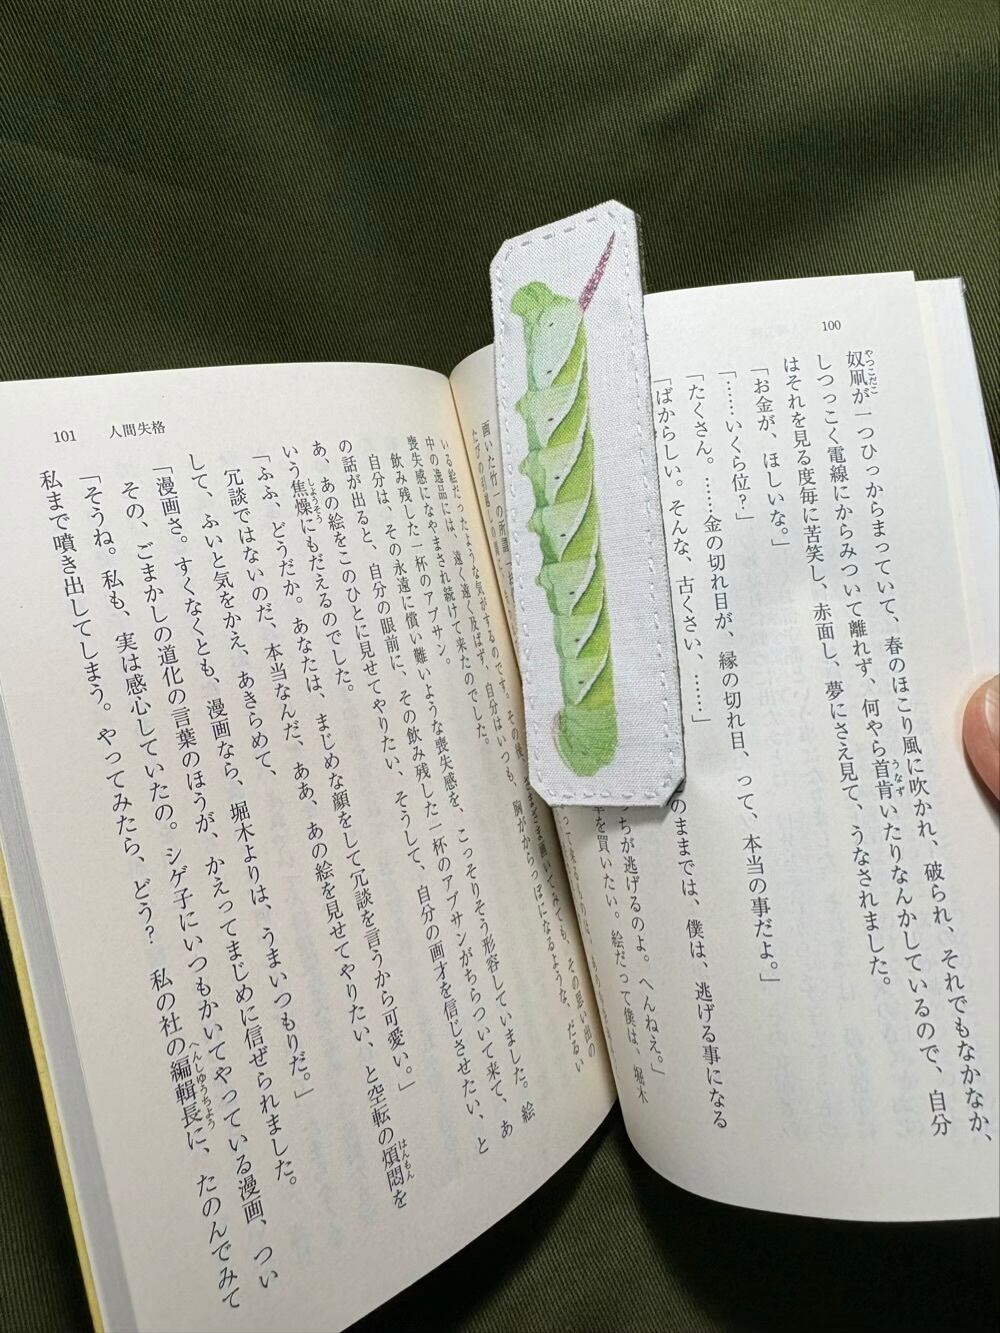 100
奴凧が一つひっからまっていて、春のほこり風に吹かれ、破られ、それでもなかなか、
しつっこく電線にからみついて離れず、何やら首肯いたりなんかしているので、自分
はそれを見る度毎に苦笑し、赤面し、夢にさえ見て、うなされました。
「お金が、ほしいな。」
「……いくら位？」
「たくさん。……金の切れ目が、縁の切れ目、って、本当の事だよ。」
「ばからしい。そんな、古くさい、……」
このままでは、僕は、逃げる事になる
っちが逃げるのよ。へんねえ。」
を買いたい。絵だって僕は、堀木
101 人間失格
画いた竹一の所謂
さまざま画いてみても、その思い出の
いる絵だったような気がするのです。その後、
中の逸品には、遠く遠く及ばず、自分はいつも、胸がからっぽになるような、だるい
喪失感になやまされ続けて来たのでした。
飲み残した一杯のアブサン。
自分は、その永遠に償い難いような喪失感を、こっそりそう形容していました。絵
の話が出ると、自分の眼前に、その飲み残した一杯のアブサンがちらついて来て、あ
あ、あの絵をこのひとに見せてやりたい、そうして、自分の画才を信じさせたい、と
いう焦燥にもだえるのでした。
「ふふ、どうだか。あなたは、まじめな顔をして冗談を言うから可愛い。」
冗談ではないのだ、本当なんだ、ああ、あの絵を見せてやりたい、と空転の煩悶を
して、ふいと気をかえ、あきらめて、
「漫画さ。すくなくとも、漫画なら、堀木よりは、うまいつもりだ。」
その、ごまかしの道化の言葉のほうが、かえってまじめに信ぜられました。
「そうね。私も、実は感心していたの。シゲ子にいつもかいてやっている漫画、つい
私まで噴き出してしまう。やってみたら、どう？ 私の社の編輯長に、たのんでみて